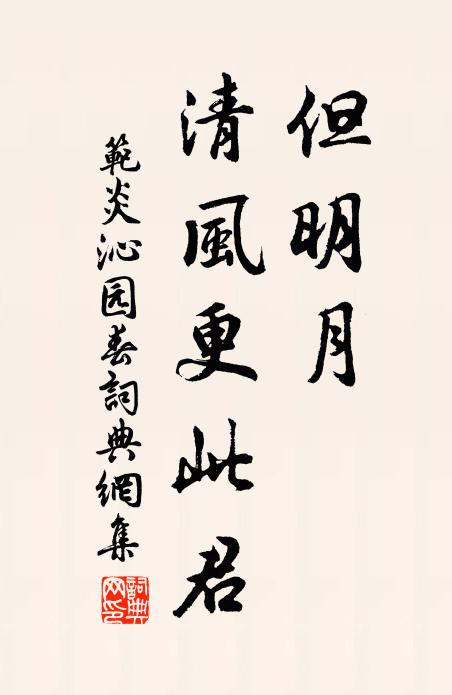 但明月
清風更此君
範炎沁园春詞典網集
詞典
网印